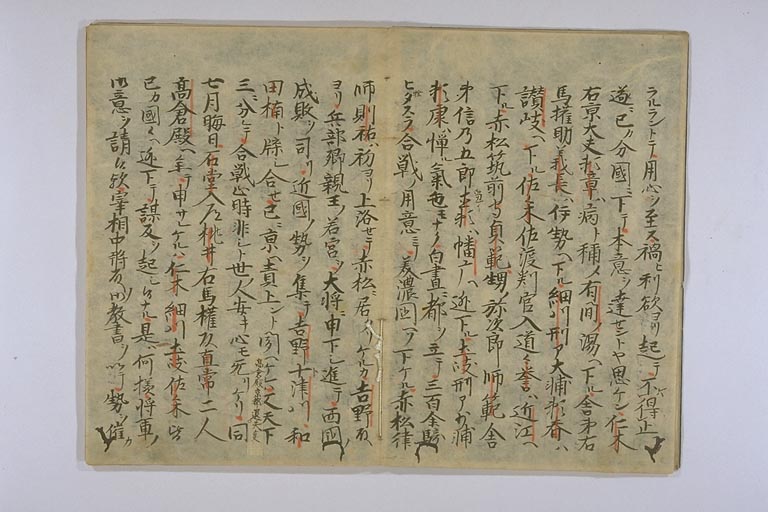 ラルラントテ用心ヲ至ス禍ヒ利欲ヨリ起テ不得止
遂ニ己カ分國ヘ下テ本意ヲ達セントヤ思ケン仁木
右京大夫頼章ハ病ト稱メ有間ノ湯ヘ下ル舎弟右
馬権助義長ハ伊勢ヘ下ル細川刑ア大輔頼春ハ
讃岐ヘ下ル佐々木佐渡判官入道々誉ハ近江ヘ
下ル赤松筑前守貞範甥ノ弥次郎師範舎
弟信乃五郎直頼ハ幡广ヘ迯下ル土岐刑ア少輔
頼康ハ憚ル氣色モナク白晝ニ都ヲ立テ三百余騎
ヒタスラ合戦ノ用意ニテ美濃國ヘソ下ケル赤松律
師則祐ハ初ヨリ上洛セテ赤松ニ居タリケルカ吉野殿
ヨリ兵部卿親王ノ若宮ヲ大将ニ申下シ進テ西國ノ
成敗ヲ司リ近國ノ勢ヲ集テ吉野十津川和
田楠ト牒シ合セ已ニ京ヘ責上ント聞ヘケレハ又天下
三ニ分テ合戦止時非シト世人安キ心モ无リケリ同
七月晦日石堂入道桃井右馬権頭直常二人
髙倉殿ヘ参テ申サレケルハ仁木細川土岐佐々木皆
己カ國々ヘ迯下テ謀反ヲ起シケナル是モ何様将軍ノ
御意ヲ請候歟宰相中将殿ノ御教書ヲ以テ勢ヲ催カ